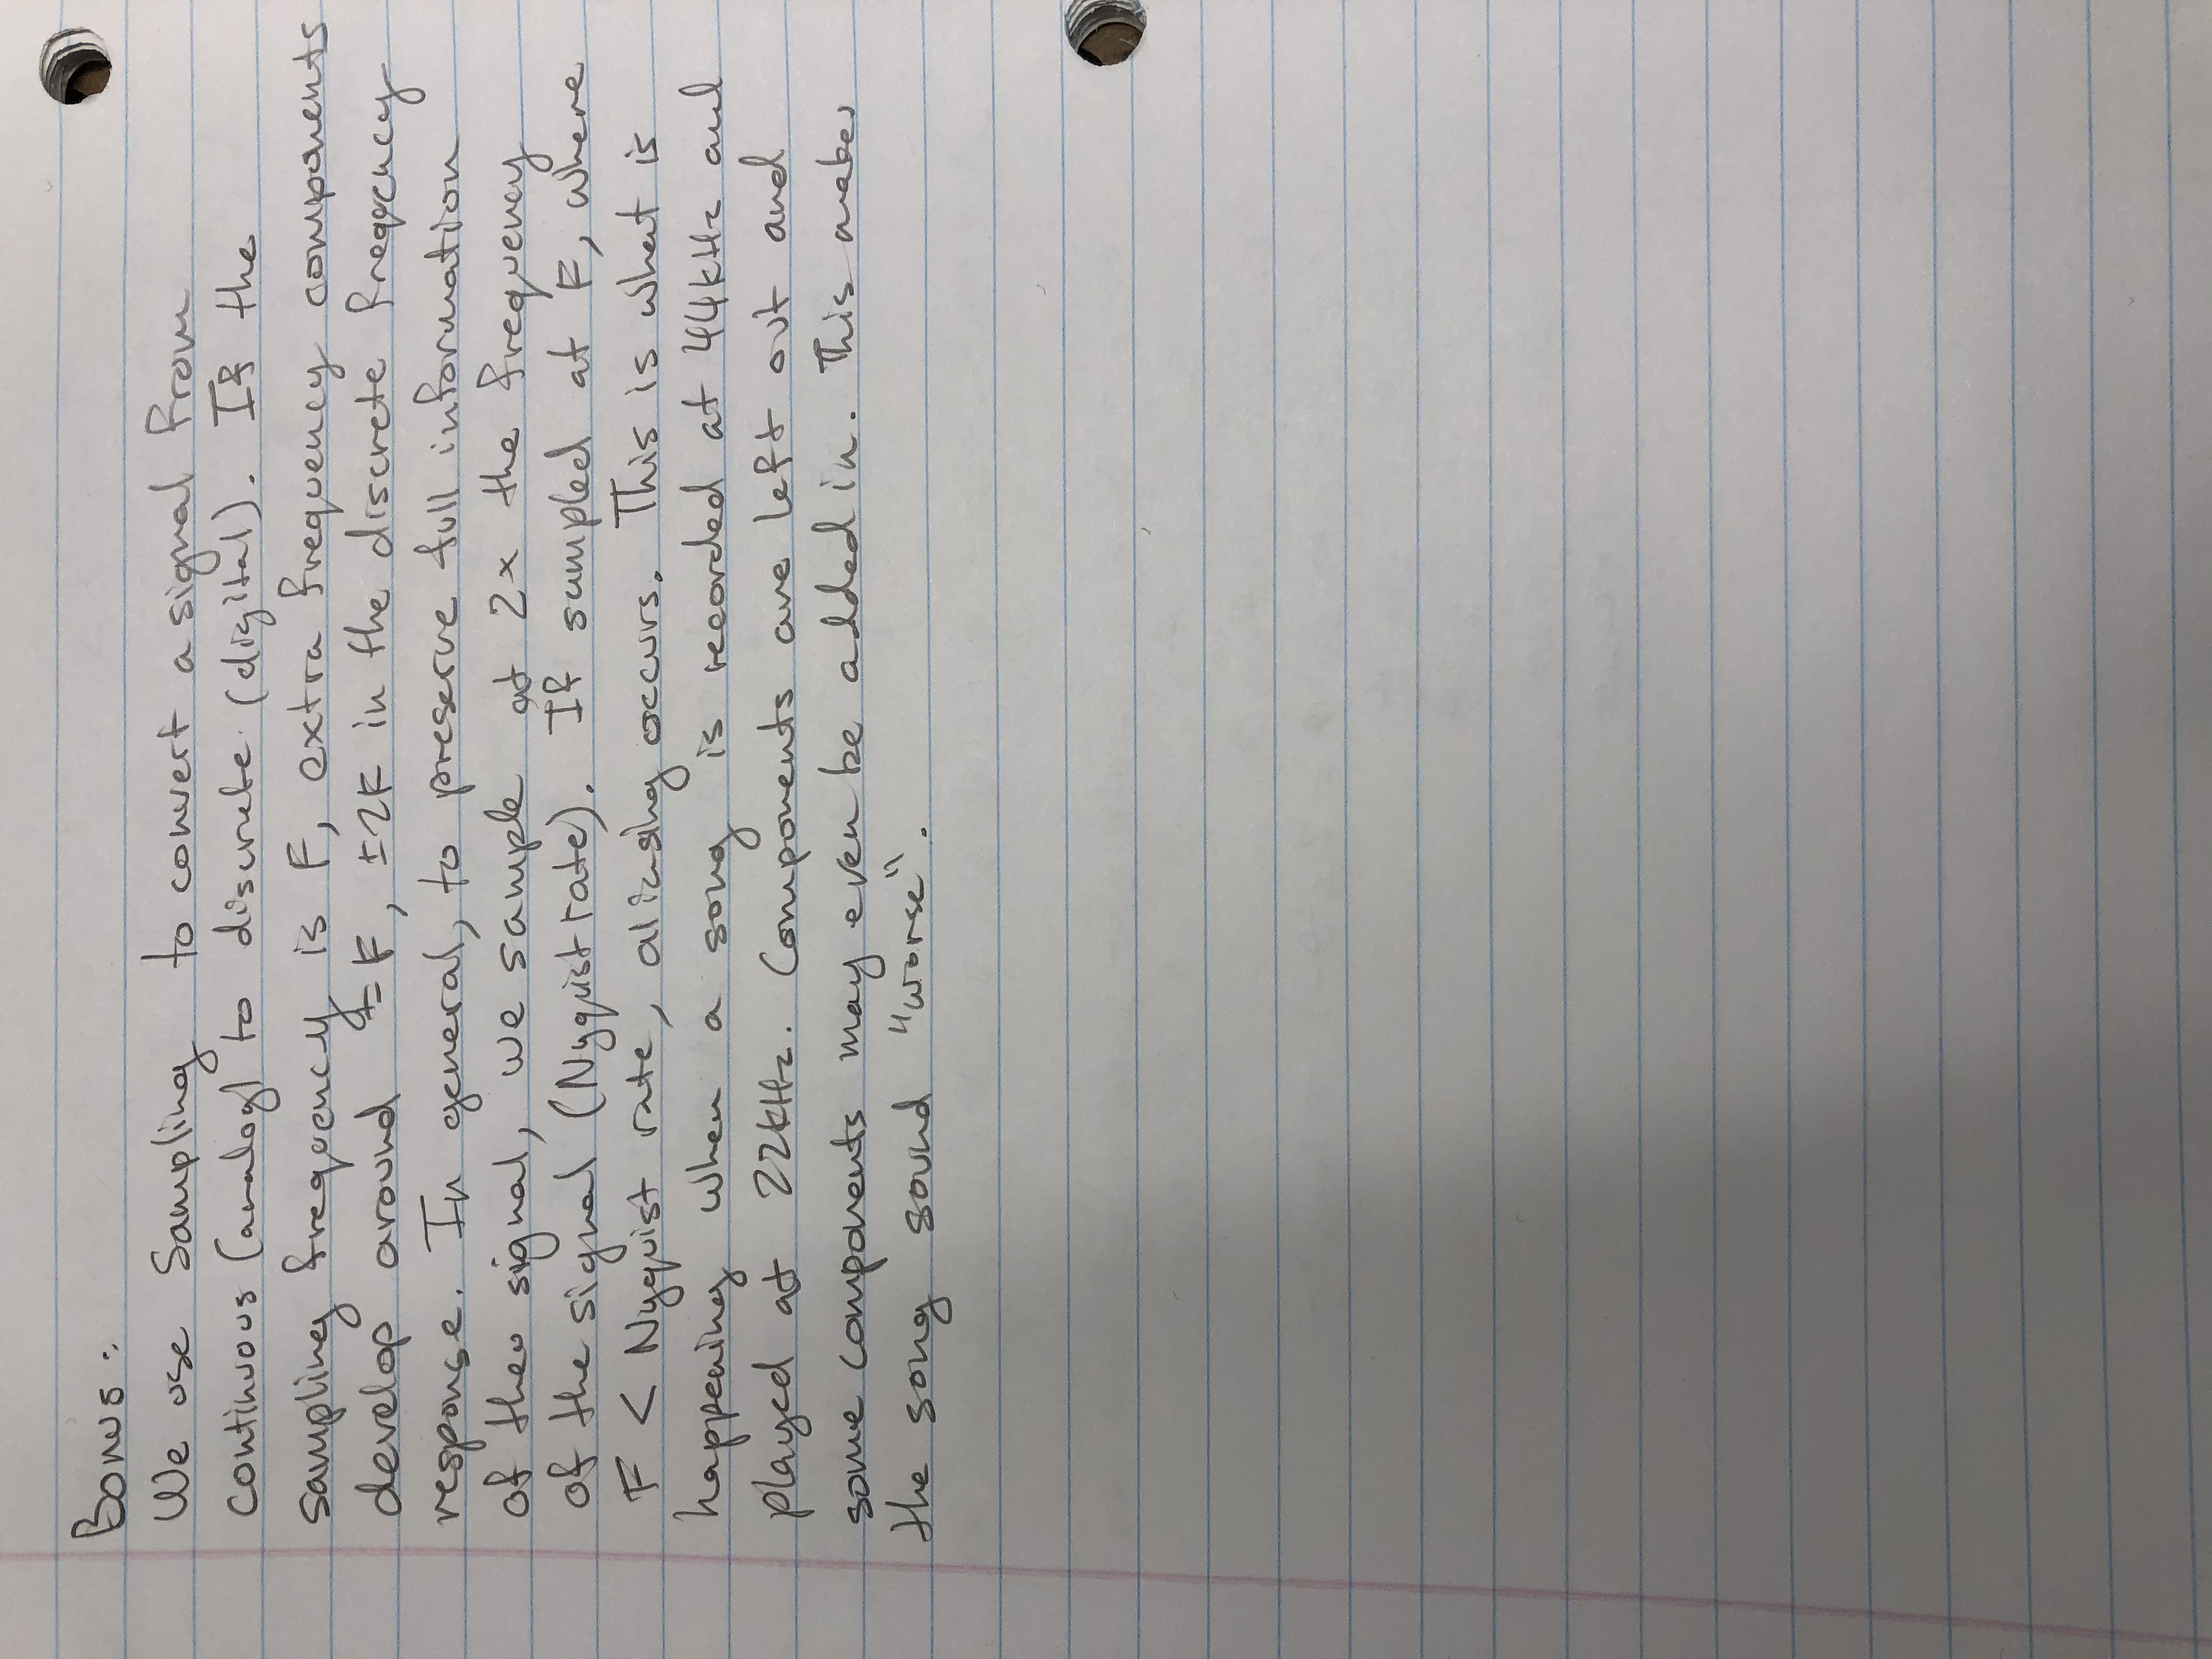 Bonus:
We use Sampling to convert a signal from
continuous (analog) to discrete (digital). If the
sampling frequency is F, extra frequency components
develop around ±F, ±2F in the discrete frequency
response. In general, to preserve full information
of the signal, we sample at 2x the frequency
of the signal (Nyquist rate). If sampled at F, where
F < Nyquist rate, aliasing occurs. This is what is
happening when a song is recorded at 44kHz and
played at 22kHz. Components are left out and
some components may even be added in. This makes
the song sound "worse".